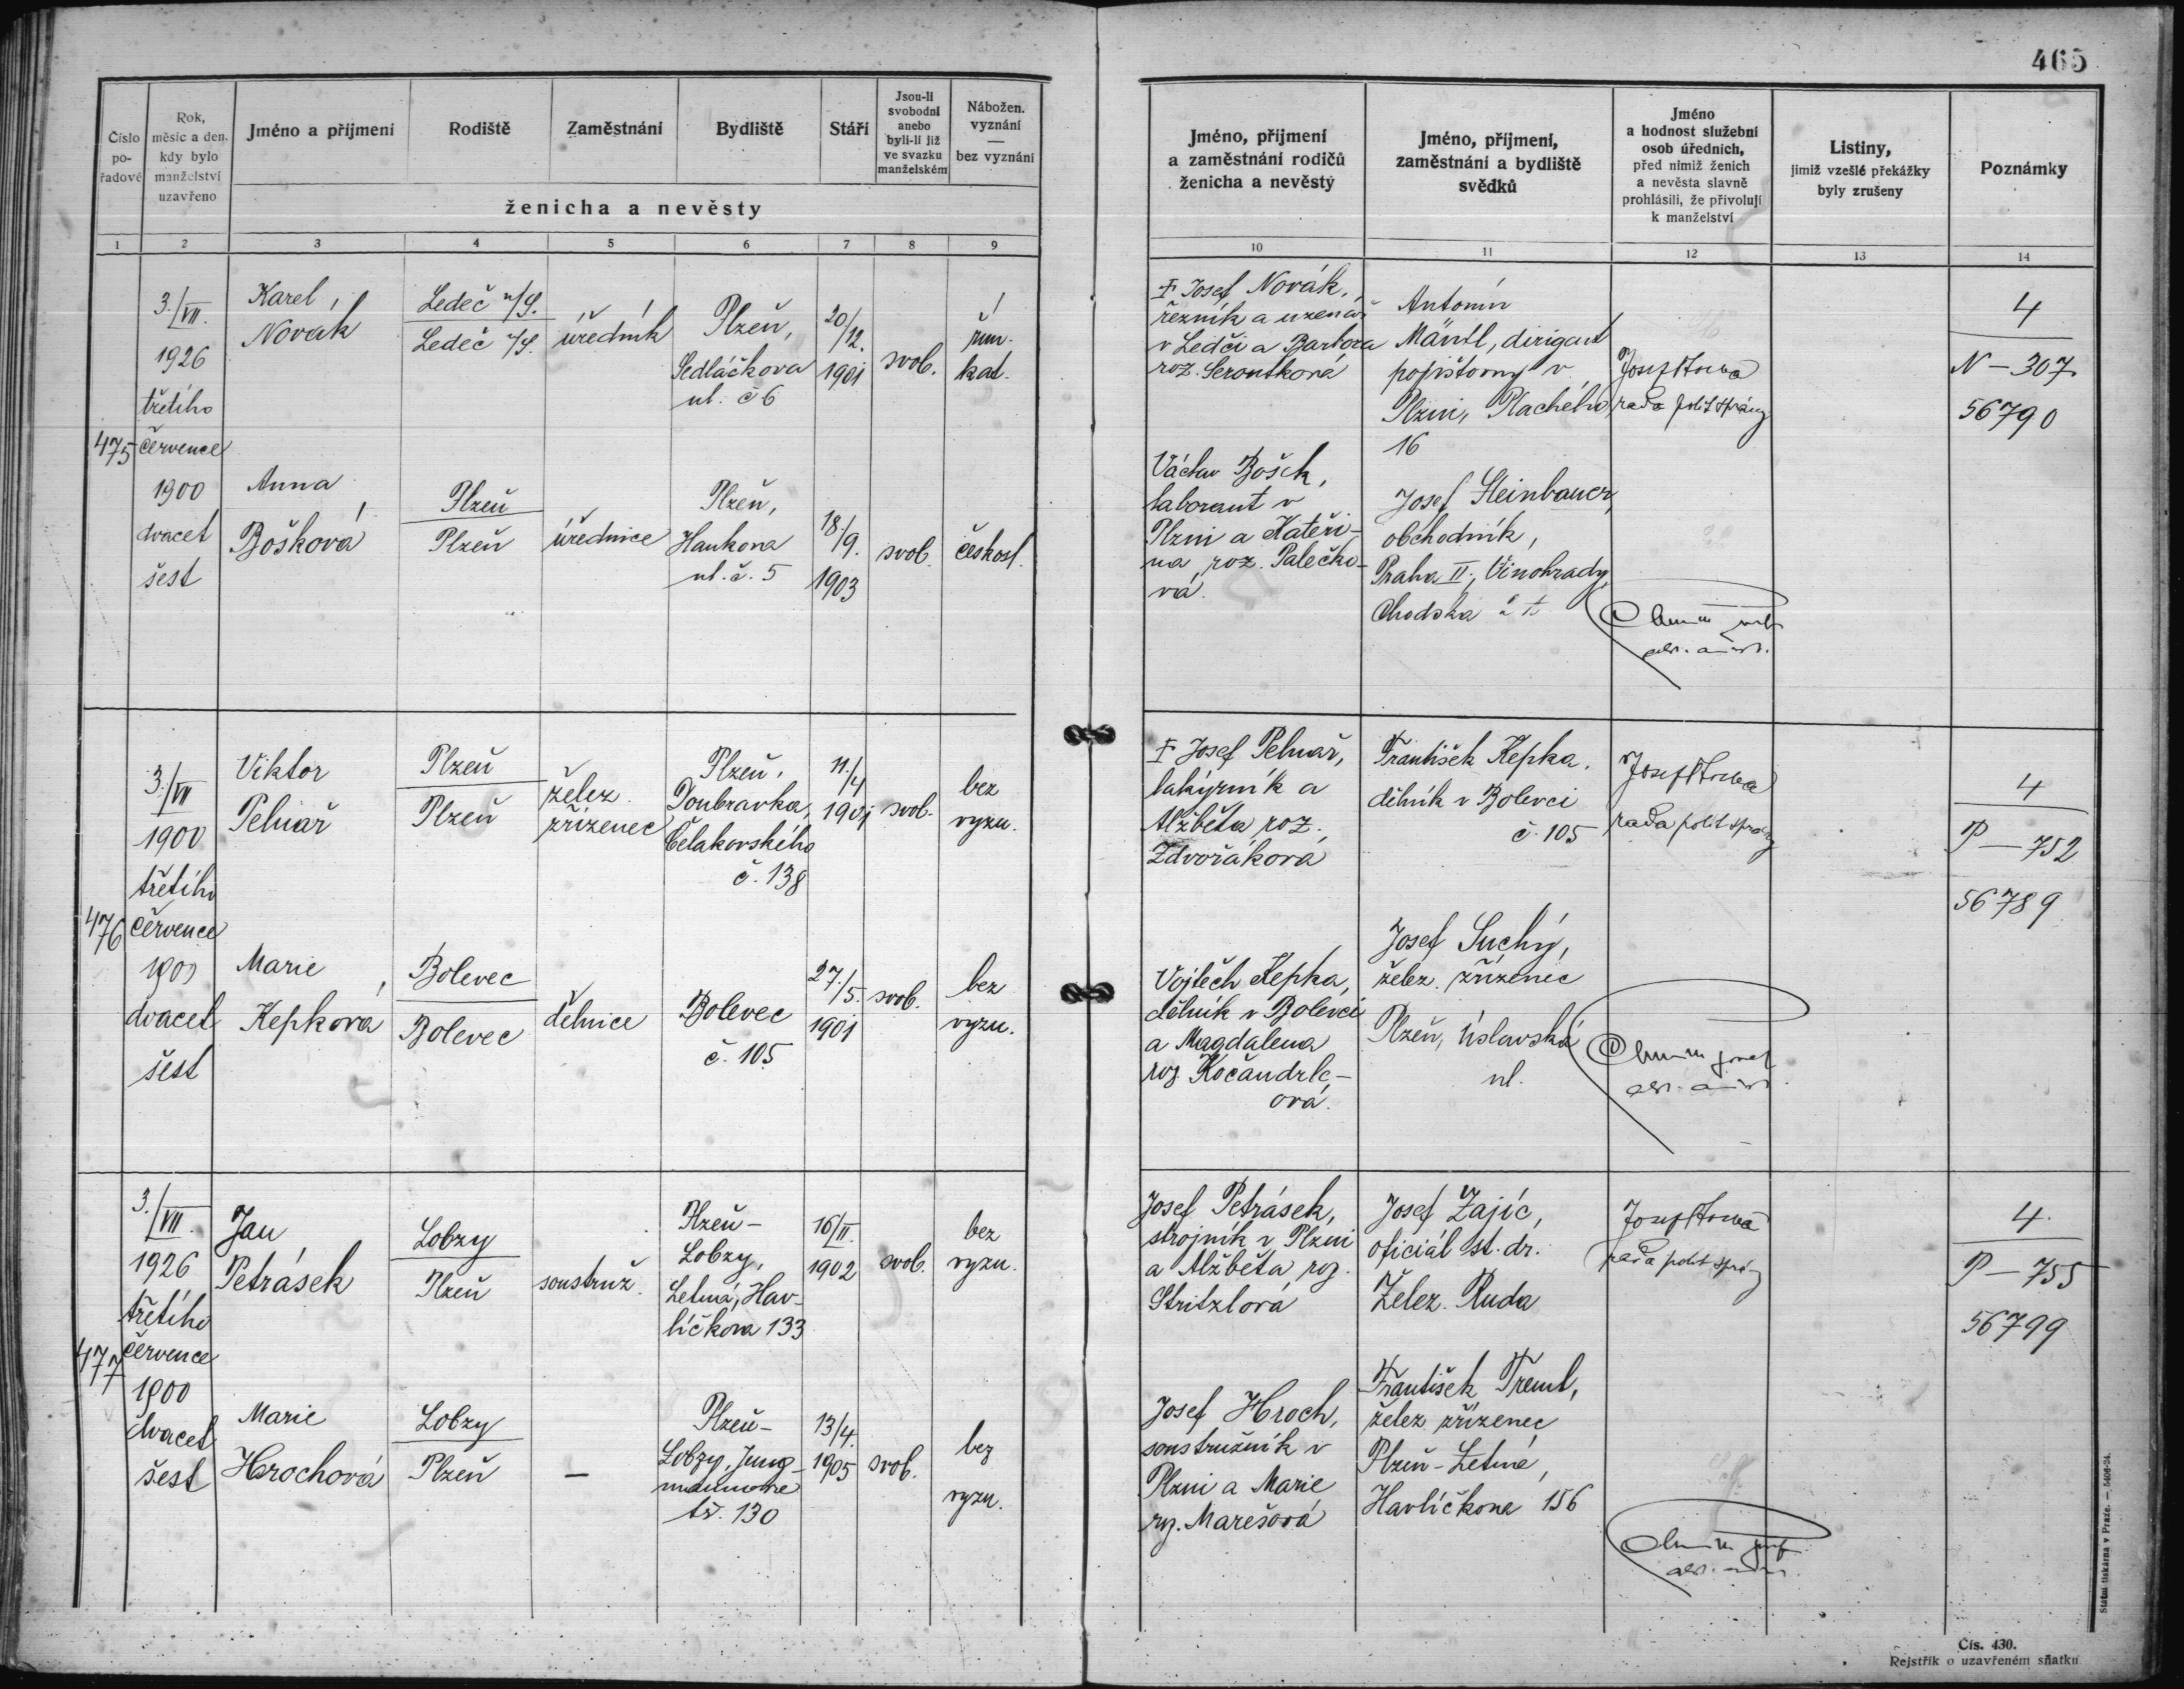 465
Číslo pořadové
Rok, měsíc a den, kdy bylo manželství uzavřeno
Jméno a příjmení
Rodiště
Zaměstnání
Bydliště
Stáří
Jsou-li svobodni anebo byli-li již ve svazku manželském
Nábožen. vyznání — bez vyznání
ženicha a nevěsty
Jméno, příjmení a zaměstnání rodičů ženicha a nevěsty
Jméno, příjmení, zaměstnání a bydliště svědků
Jméno a hodnost služební osob úředních, před nimiž ženich a nevěsta slavně prohlásili, že přivolují k manželství
Listiny, jimiž vzešlé překážky byly zrušeny
Poznámky
1 2 3 4 5 6 7 8 9 10 11 12 13 14
475
3./VII.
1926
třetího
července
1900
dvacet
šest
Karel
Novák
Ledeč n/S.
Ledeč n/S.
úředník
Plzeň,
Sedláčkova
ul. č 6
20/12.
1901
svob.
řím.
kat.
Josef Novák,
řezník a uzenář
v Ledči a Barbora
roz.
Antonín
Mäntl, dirigent
pojišťovny v
Plzni, Plachého
16
Josef
rada polit správy
4
N – 307
56790
Anna
Bošková
Plzeň
Plzeň
úřednice
Plzeň,
Hankova
ul. č. 5
18./9.
1903
svob.
českosl.
Václav Bošek,
laborant v
Plzni a Kateři-
na roz. Palečko-
vá.
Josef Steinbauer,
obchodník,
Praha II., Vinohrady,
Chodska
476
3./VII
1900
třetího
července
1900
dvacet
šest
Viktor
Pelnař
Plzeň
Plzeň
želez.
zřízenec
Plzeň,
Doubravka,
Čelakovského
č. 138
11./4
1901
svob.
bez
vyzn.
Josef Pelnař,
lakýrník a
Alžběta roz.
Zdvořáková
František Kepka,
dělník v Bolevci
č. 105
Josef
rada polit správy
4
P – 752
56789
Marie
Kepková
Bolevec
Bolevec
dělnice
Bolevec
č. 105
27./5.
1901
svob.
bez
vyzn.
Vojtěch Kepka,
dělník v Bolevci
a Magdalena
roz. Kočandrle-
ová.
Josef Suchý,
želez. zřízenec
Plzeň, Úslavská
ul.
477
3./VII.
1926
třetího
července
1900
dvacet
šest
Jan
Petrásek
Lobzy
Plzeň
soustruž.
Plzeň –
Lobzy,
Letná, Hav-
líčkova 133
16/II.
1902
svob.
bez
vyzn.
Josef Petrásek,
strojník v Plzni
a Alžběta roz.
Stritzlová
Josef Zajíc,
oficiál st. dr.
Želez. Ruda
Josef
rada polit správy
4.
P – 755
56799
Marie
Hrochová
Lobzy
Plzeň
—
Plzeň –
Lobzy, Jung-
mannova
tř. 130
13/4.
1905
svob.
bez
vyzn.
Josef Hroch,
soustružník v
Plzni a Marie
roz. Marešová
František Treml,
želez zřízenec
Plzeň – Letná,
Havlíčkova 156
Státní tiskárna v Praze. — 5406-24.
Čís. 430.
Rejstřík o uzavřeném sňatku